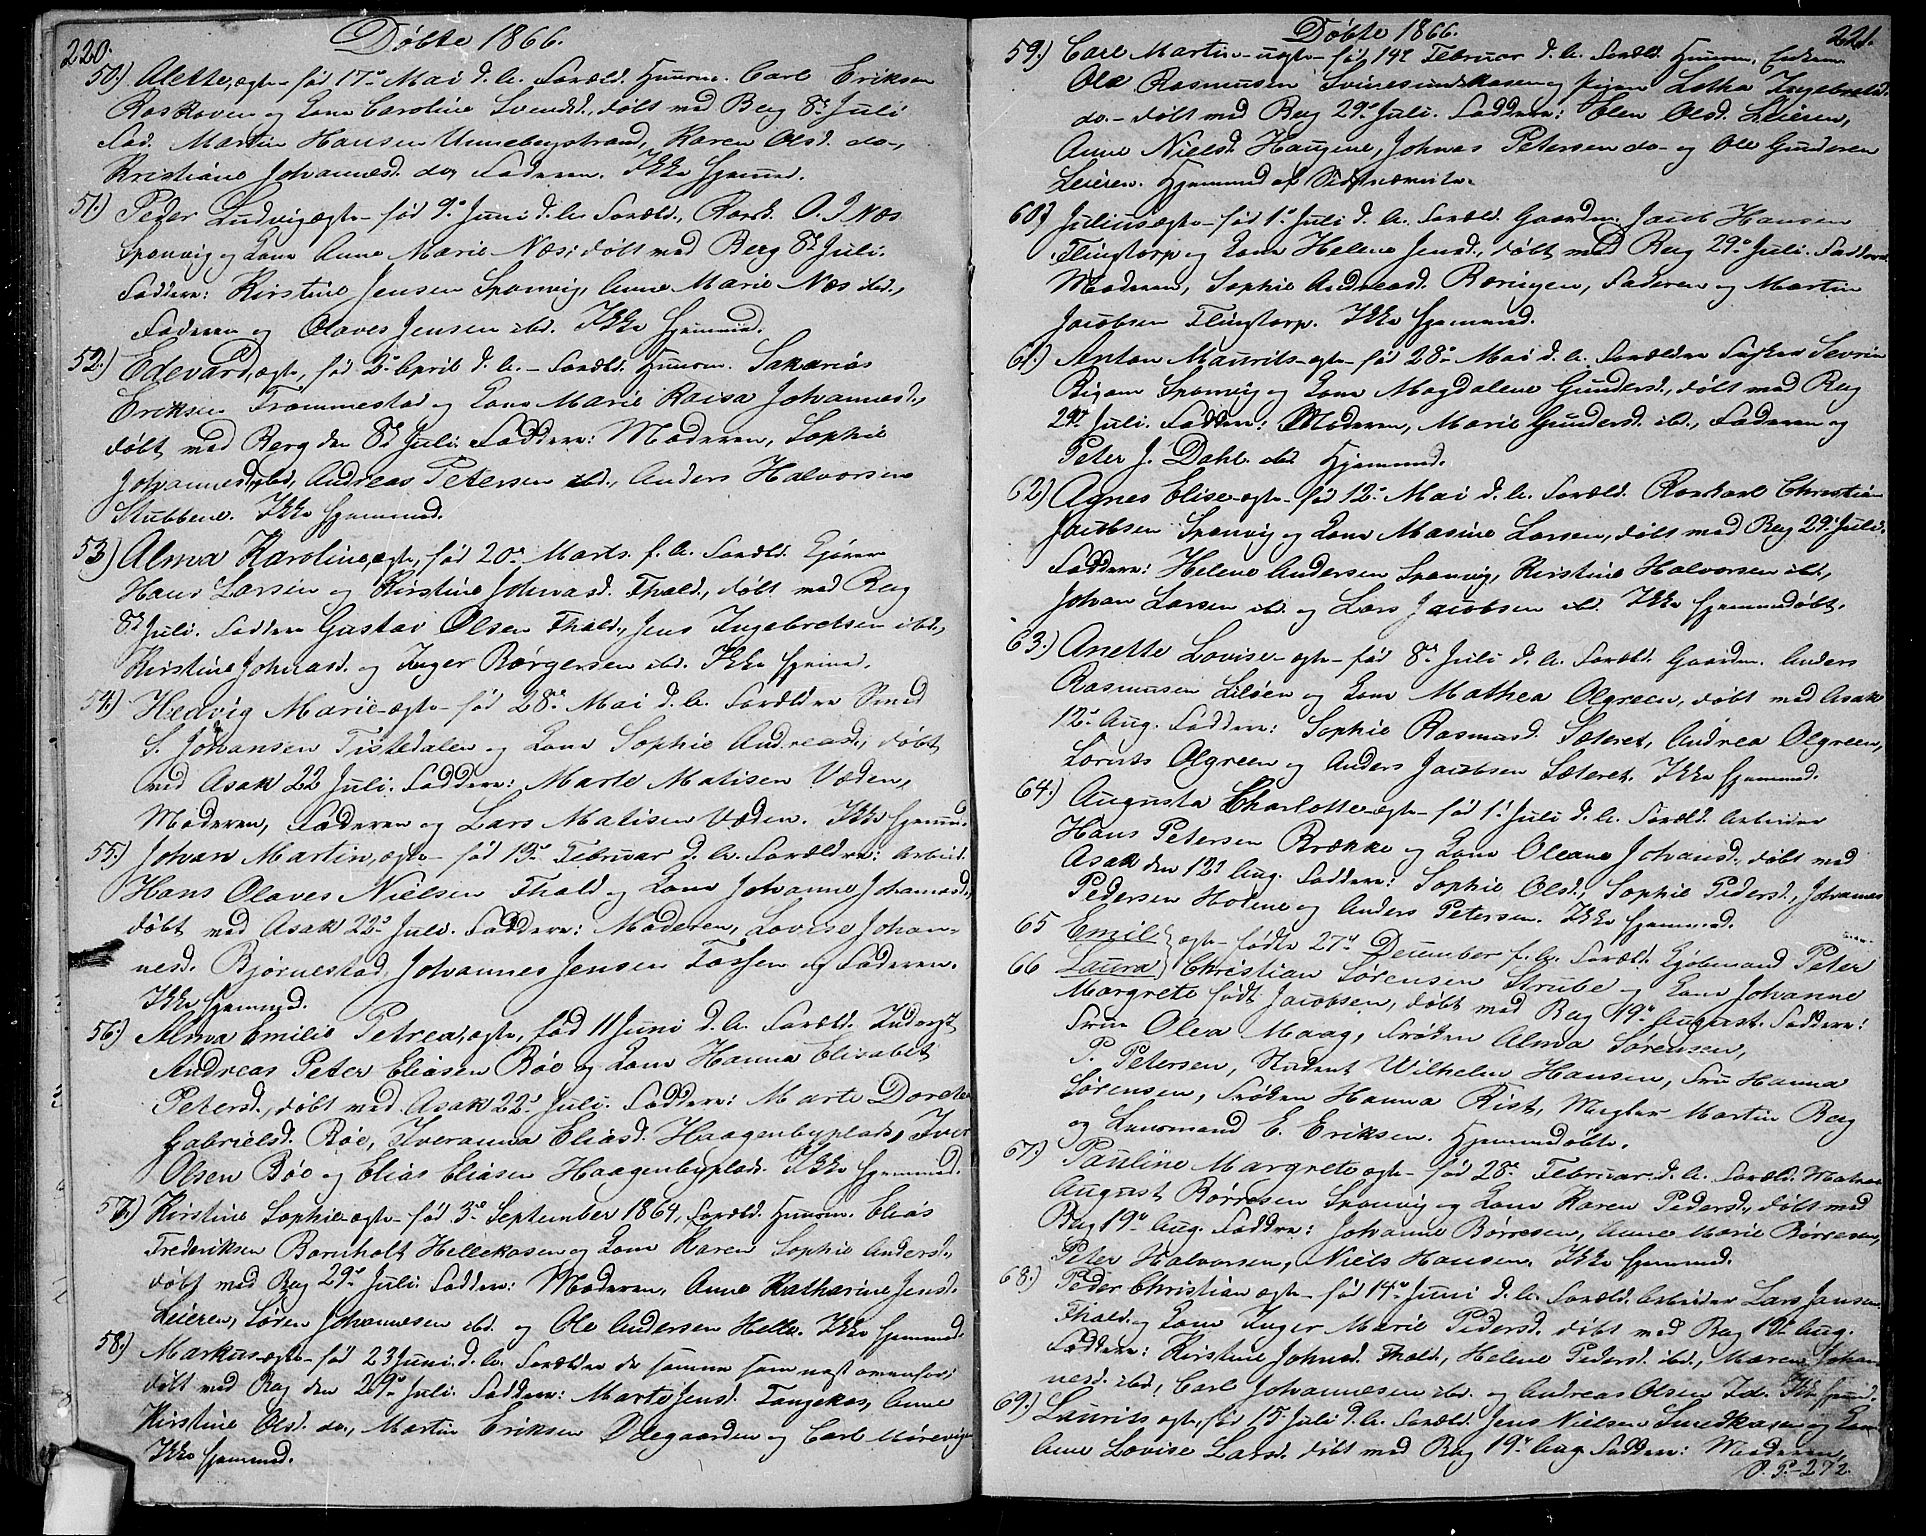 220.
Døbte 1866.
50.) Alette, ægte - fød 17de Mai d. A. Foræld. Huusm. Carl Eriksen
Røskoven og Kone Caroline Svendsd., døbt ved Berg 8de Juli
Fad. Martin Hansen Unnebergstrand, Karen Olsd. do.,
Kristiane Johannesd. do, Faderen. Ikke hjemmed.
51.) Peder Ludvig ægte - fød 9de Juni d. A. Foræld., O. J. Næs
Sponvig og Kone Anne Marie Næs; døbt ved Berg 8de Juli.
Faddere: Kirstine Jensen Sponvig, Anne Marie Næs ibd.,
Faderen og Olaves Jensen ibd. Ikke hjemmed.
52.) Edevard, ægte, fød 2de April d. A. - Foræld. Huusm. Sakarias
Eriksen Trommestad og Kone Marie Johannesd.,
døbt ved Berg den 8de Juli. Faddere: Moderen, Sophie
Johannesd. ibd, Andreas Petersen ibd., Anders Halvorsen
Stubbene. Ikke hjemmed.
53.) Alma Karoline, ægte, fød 20de Marts f. A. Foræld. Gjører
Hans Larsen og Kirstine Johnasd. Thald., døbt ved Berg
8de Juli. Faddere Gustav Olsen Thald., Jens Ingebretsen ibd.,
Kirstine Johnasd. og Inger Børgersen ibd. Ikke hjemmed.
54.) Hedvig Marie - ægte - fød 28de Mai d. A. Forældre Smed
S. Johansen Tistedalen og Kone Sophie Andreasd., døbt
ved Asak 22 Juli. Faddere: Marte Matisen Væden,
Moderen, Faderen og Lars Matisen Væden. Ikke hjemmed.
55.) Johan Martin, ægte - fød 13de Februar d. A. Forældre: Arbeid.
Hans Olaves Nielsen Thald og Kone Johanne Johannesd.,
døbt ved Asak 22de Juli. Faddere: Moderen, Lovise Johan-
nesd. Bjørnestad, Johannes Jensen Tossen og Faderen.
Ikke hjemmed.
56.) Alma Emilie Petrea, ægte, fød 11 Juni d. A. Foræld. Inderst
Andreas Peter Eliasen Bøe og Kone Hanna Elisabet
Petersd., døbt ved Asak 22de Juli. Faddere: Marte Dorthea
Gabrielsd. Bøe, Iveranna Eliasd. Haagenbyplads, Iver
Olsen Bøe og Elias Eliasen Haagenbyplads. Ikke hjemmed.
57.) Kirstine Sophie - ægte - fød 3de September 1864, Foræld. Huusm. Elias
Frederiksen Bornholt Hellekasen og Kone Karen Sophie Andersd.,
døbt ved Berg 29de Juli. Faddere: Moderen, Anne Katharine Jensd.
Leieren, Søren Johannesen ibd. og Ole Andersen Helle. Ikke hjemmed.
58.) Markus - ægte - fød 23 Juni d. A. Forældre de samme som næst ovenfor;
døbt ved Berg den 29de Juli. Faddere: Marte Jensd. Tangekas, Anne
Kirstine Olsd. do., Martin Eriksen Ødegaarden og Carl
Ikke hjemmed.
Døbte 1866.
221.
59.) Carl Martin - uægte - fød 14de Februar d. A. Foræld. Enkem.
Ole Rasmussen Svinesundskasen og pigen Lotha Ingebretsd.
do. - døbt ved Berg 29de Juli. Faddere: Elen Olsd. Leieren,
Anne Nielsd. Haugene, Johnas Petersen do - og Ole Gundersen
Leieren. Hjemmed. af
60.) Julius, ægte - fød 1de Juli d. A. Foræld. Gaardm. Jacob Hansen
Flingtorp og Kone Helene Jensd., døbt ved Berg 29de Juli. Faddere
Moderen, Sophie Andreasd. Røningen, Faderen og Martin
Jacobsen Flingtorp. Ikke hjemmed.
61.) Anton Mauritz - ægte - fød 28de Mai d. A. Forældre Severin
Sponvig og Kone Magdalene Gundersd., døbt ved Berg
29de Juli. Faddere: Moderen, Marie Gundersd. ibd., Faderen og
Peter J. Dahl ibd. Hjemmed.
62.) Agnes Elise - ægte - fød 12de Mai d. A. Foræld. Christian
Jacobsen Sponvig og Kone Masine Larsen, døbt ved Berg 29de Juli.
Faddere: Helene Andersen Sponvig, Kirstine Halvorsen ibd.,
Johan Larsen ibd. og Lars Jacobsen ibd. Ikke hjemmedøbt.
63.) Anette Lovise - ægte - fød 8de Juli d. A. Foræld. Gaardm. Anders
Rasmusen Liløen og Kone Mathea Olgreen, døbt ved Asak
12de Aug. Faddere: Sophie Rasmusd. Sæteret, Andrea Olgreen,
Lorents Olgreen og Anders Jacobsen Sæteret. Ikke hjemmed.
64.) Augusta Charlotte - ægte - fød 1de Juli d. A. Foræld. Arbeider
Hans Petersen Brække og Kone Oleane Johansd., døbt ved
Asak den 12de Aug. Faddere: Sophie Olsd., Sophie Pedersd., Johannes
Pedersen Holene og Anders Petersen. Ikke hjemmed.
65 Emil } ægte - fødte 27de December f. A. Foræld. Kjøbmand Peter
66 Laura } Christian Sørensen Strube og Kone Johanne
Margrete født Jacobsen, døbt ved Berg 19de August. Faddere:
Frue Olea Maag, Frøken Alma Sørensen,
P. Petersen, Student Wilhelm Hansen, Fru Hanna
Sørensen, Frøken Hanna Rist, Megler Martin Berg
og Lensmand E. Eriksen. Hjemmedøbte.
67.) Pauline Margrete ægte - fød 28de Februar d. A. Foræld. Matros
August Børresen Sponvig og Kone Karen Pedersd., døbt ved
Berg 19de Aug. Faddere: Johanne Børresen, Anne Marie Børresen,
Peter Halvorsen, Niels Hansen. Ikke hjemmed.
68.) Peder Christian ægte - fød 14de Juni d. A. Foræld. Arbeider Lars Jansen
Thald. og Kone Inger Marie Pedersd. døbt ved Berg 19de Aug.
Faddere: Kirstine Johnsd. Thald., Helene Pedersd. ibd., Maren Johan
nesd. ibd., Carl Johannesen ibd. og Andreas Olsen Id. Ikke hjemmed.
69.) Laurits ægte, fød 15 Juli d. A. Foræld. Jens Nielsen Smedkasen og Kone
Anne Lovise Larsd. døbt ved Berg 19de Aug. Faddere: Moderen,
P. P. - 272.